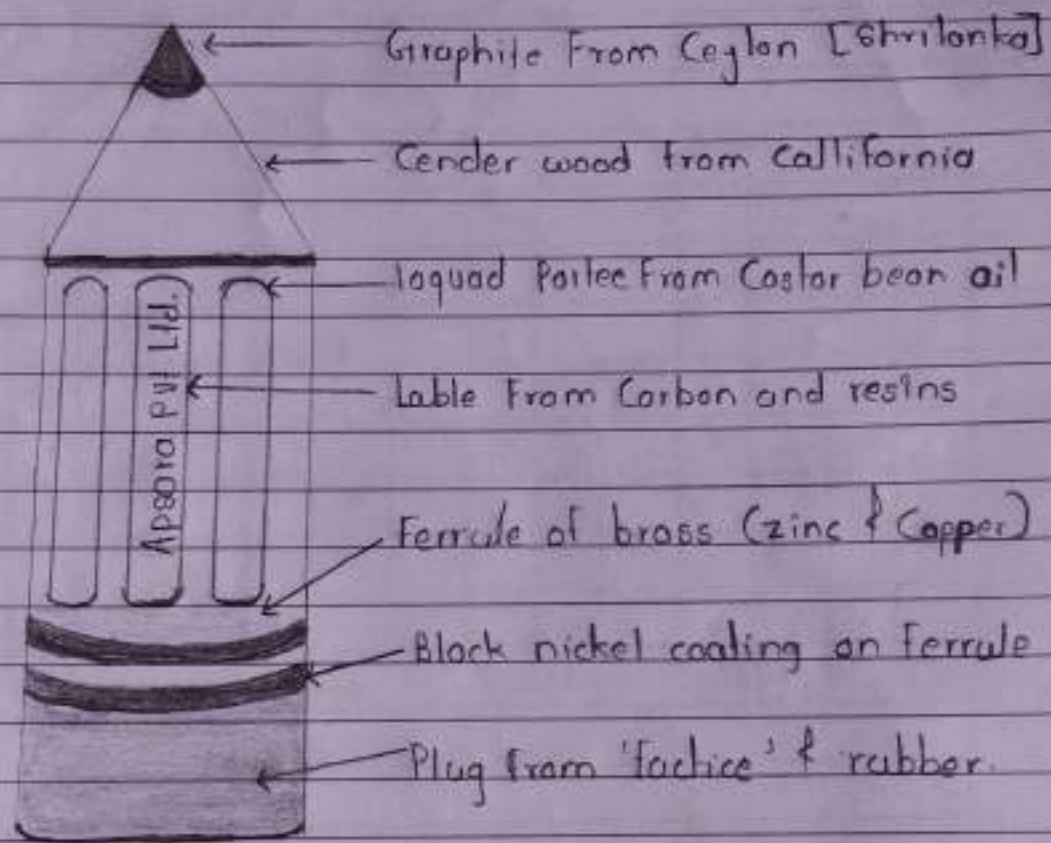 Graphite From Ceylon [Shrilanka]
Cender wood from Callifornia
laquad Pailee From Castor bean oil
Apsara pvt LTD.
Lable From Carbon and resins
Ferrule of brass (zinc & Copper)
Black nickel coating on Ferrule
Plug from 'factice' & rubber.